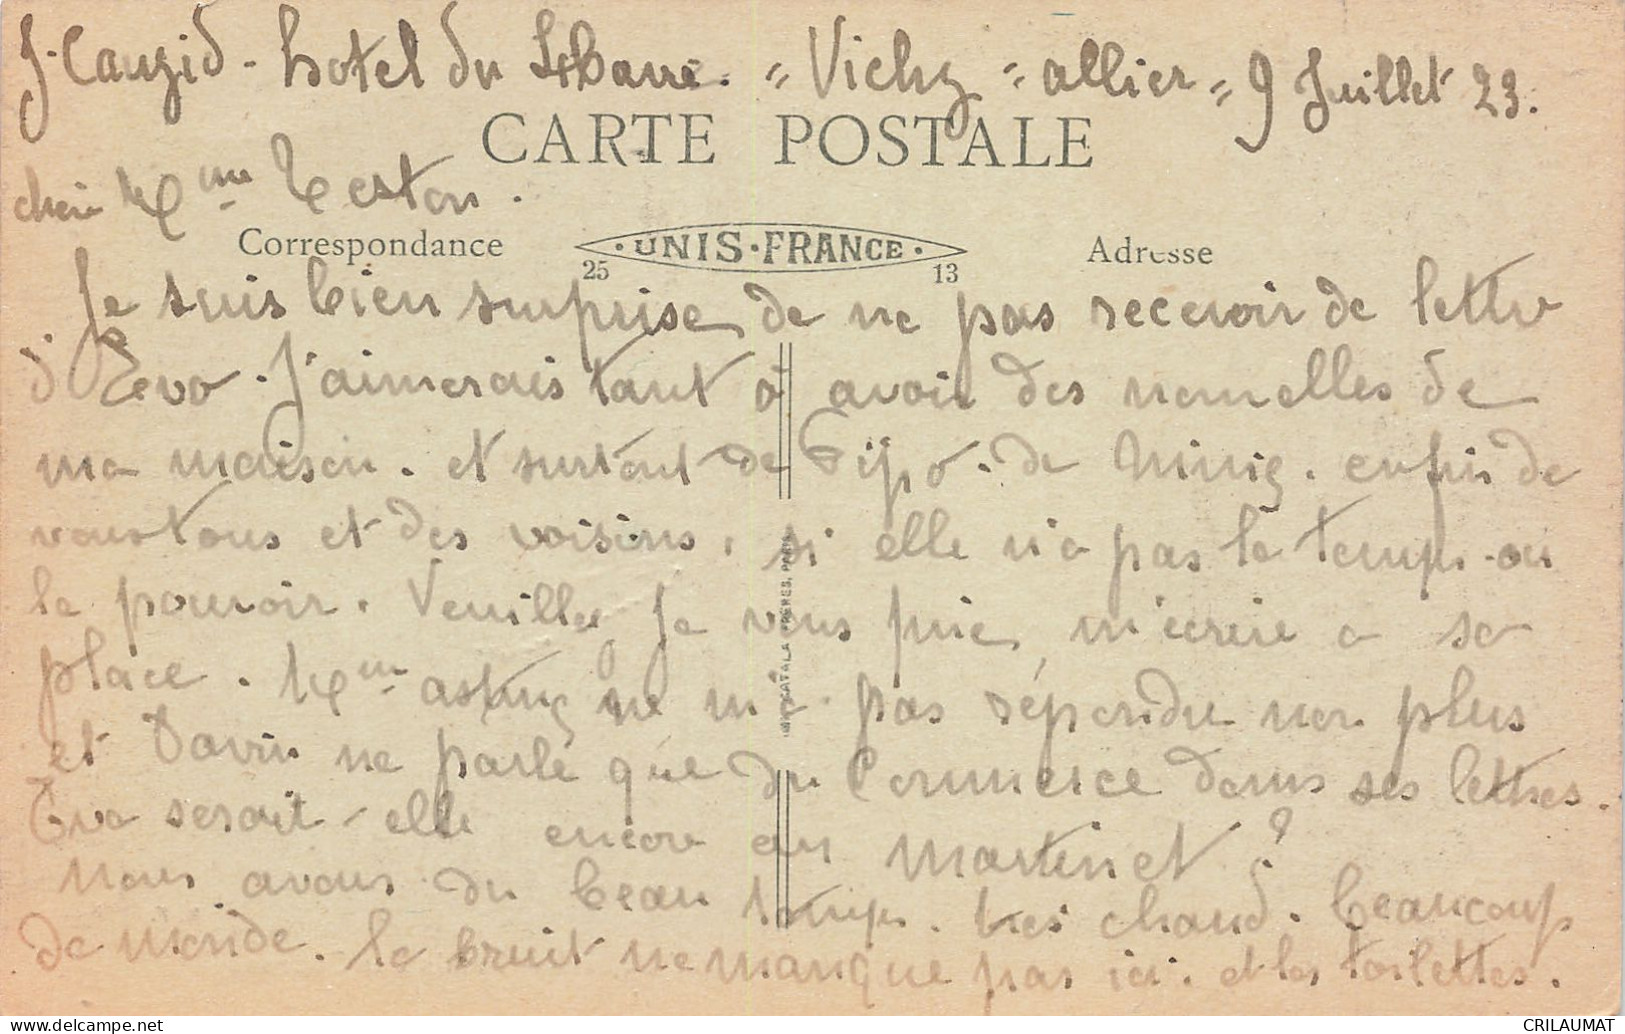 J. Cauzid - hotel du Havre. "Vichy" "allier" 9 Juillet 23.
CARTE POSTALE
chère Mme Teston.
Correspondance
UNIS-FRANCE
25 13
Adresse
Je suis bien surprise de ne pas recevoir de lettre
d'Eva. J'aimerais tant à avoir des nouvelles de
ma maison. et surtout de Pipo. de Ninig. enfin de
vous tous et des voisins, si elle n'a pas le temps ou
le pouvoir. Veuillez, je vous prie, m'écrire a sa
place. Mme astrug ne m'a pas répondu non plus
et David ne parle que du Commerce dans ses lettres.
Eva serait-elle encore au Martinet ?
Nous avons du beau temps. très chaud. beaucoup
de monde. le bruit ne manque pas ici. et les toilettes.
CATALA FRERES, PARIS
CRILAUMAT